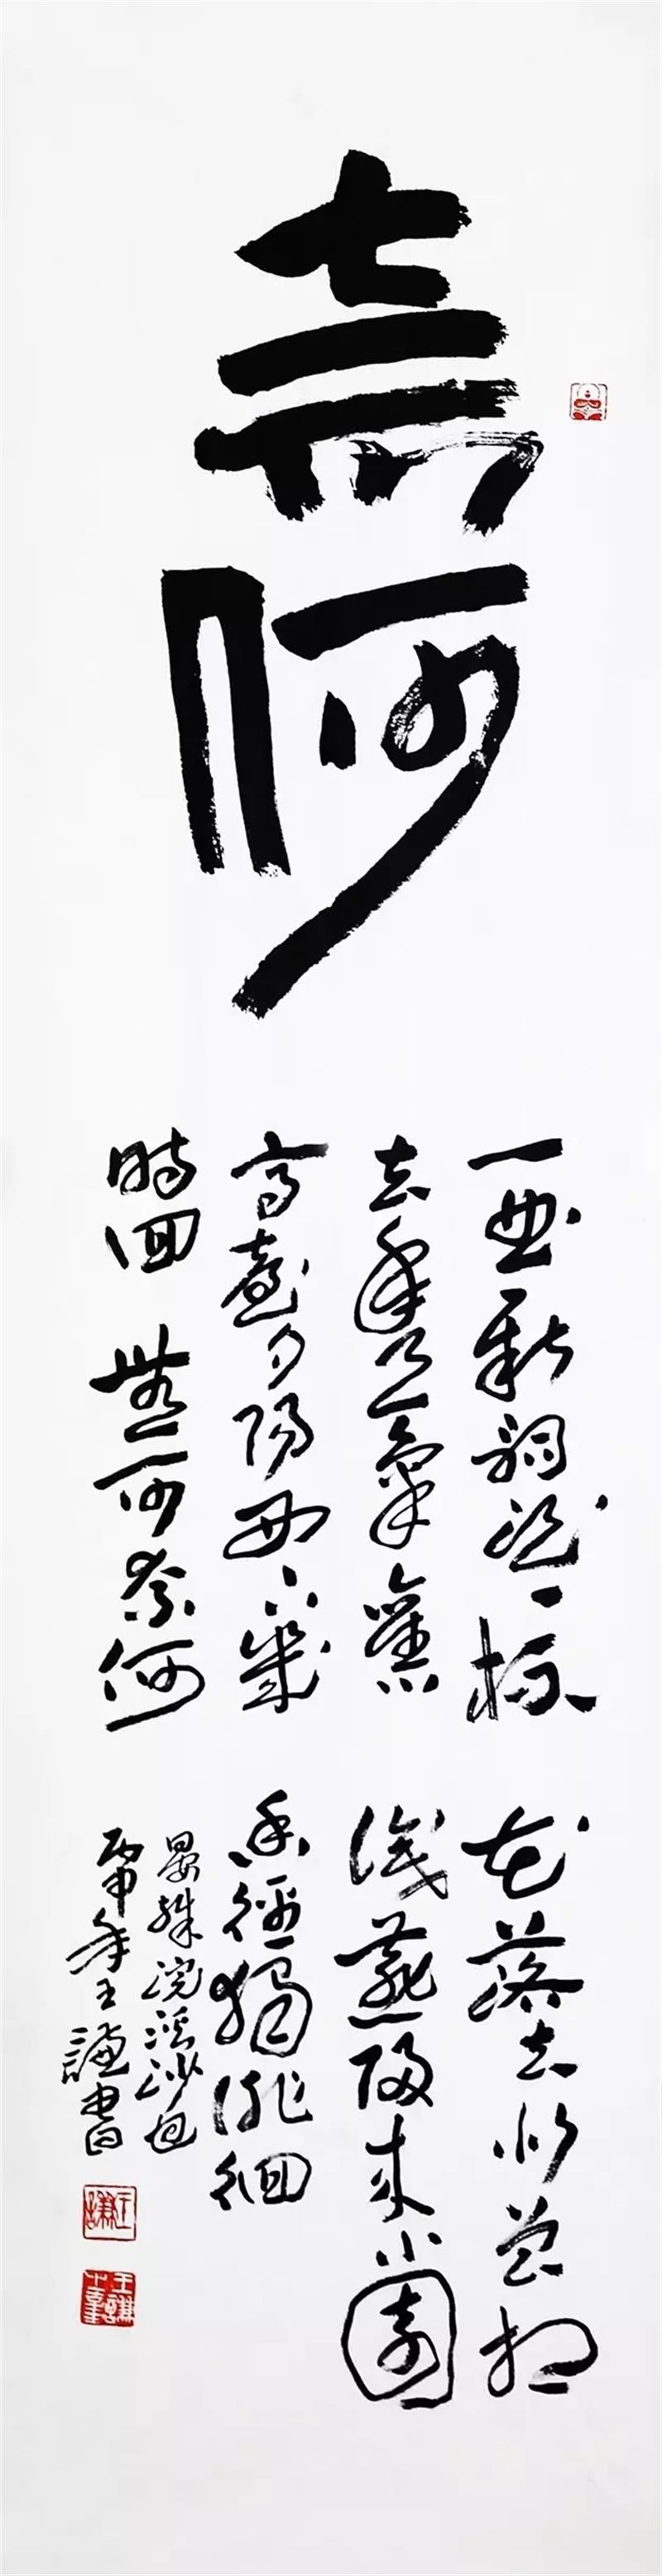 一曲新詞酒一杯
去年天氣舊
亭臺夕陽西下幾
時回 無可奈何
花落去似曾相
識燕歸來小園
香徑獨徘徊
晏殊浣溪沙
虎年王謙書
王謙